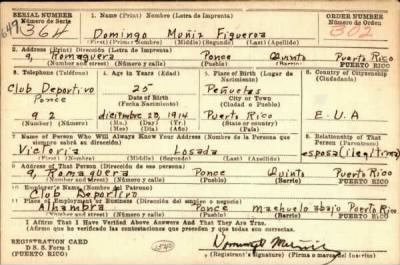 SERIAL NUMBER
Número de Serie
1. Name (Print) Nombre (Letra de Imprenta)
ORDER NUMBER
Número de Orden
364
Domingo Muñiz Figueroa
302
(First) (Primer) Nombre (Middle) (Segundo) (Last) (Apellido)
2. Address (Print) Dirección (Letra de Imprenta)
9, Romaguera Ponce Quinto Puerto Rico
(Number and street) (Número y calle) (Town) (Ciudad) (Barrio) PUERTO RICO
3. Telephone (Teléfono)
4. Age in Years (Edad)
5. Place of Birth (Lugar de Nacimiento)
6. Country of Citizenship (Ciudadanía)
Club Deportivo
Ponce
25
Peñuelas
Date of Birth
(Fecha Nacimiento)
City or Town
(Ciudad o Pueblo)
9 2 diciembre 20, 1914 Puerto Rico E.U.A
(Number) (Número) (Mo.) (Mes) (Day) (Día) (Yr.) (Año) (State or country) (Estado o país)
7. Name of Person Who Will Always Know Your Address (Nombre de la Persona que siempre sabrá su dirección)
8. Relationship of That Person (Parentesco)
Victoria Losada esposa (ilegitima)
(First) (Primer) Nombre (Middle) (Segundo) (Last) (Apellido)
9. Address of That Person (Dirección de esa persona)
9, Romaguera Ponce Quinto Puerto Rico
(Number and street) (Número y calle) (Town) (Ciudad) (Barrio) PUERTO RICO
10. Employer's Name (Nombre del Patrono)
Club Deportivo
11. Place of Employment or Business (Dirección del empleo o negocio)
Alhambra Ponce Machuelo abajo Puerto Rico
(Number and street) (Número y calle) (Town) (Ciudad) (Barrio) PUERTO RICO
I Affirm That I Have Verified Above Answers And That They Are True.
Afirmo que he verificado las contestaciones que preceden y que todas son correctas.
REGISTRATION CARD
D. S. S. Form 1
(Registrant's signature) (Firma o marca del Inscrito)